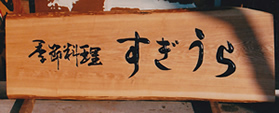 季節料理 すぎうら